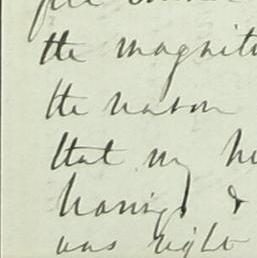 the magnit
the nation
that my he
having &
was right